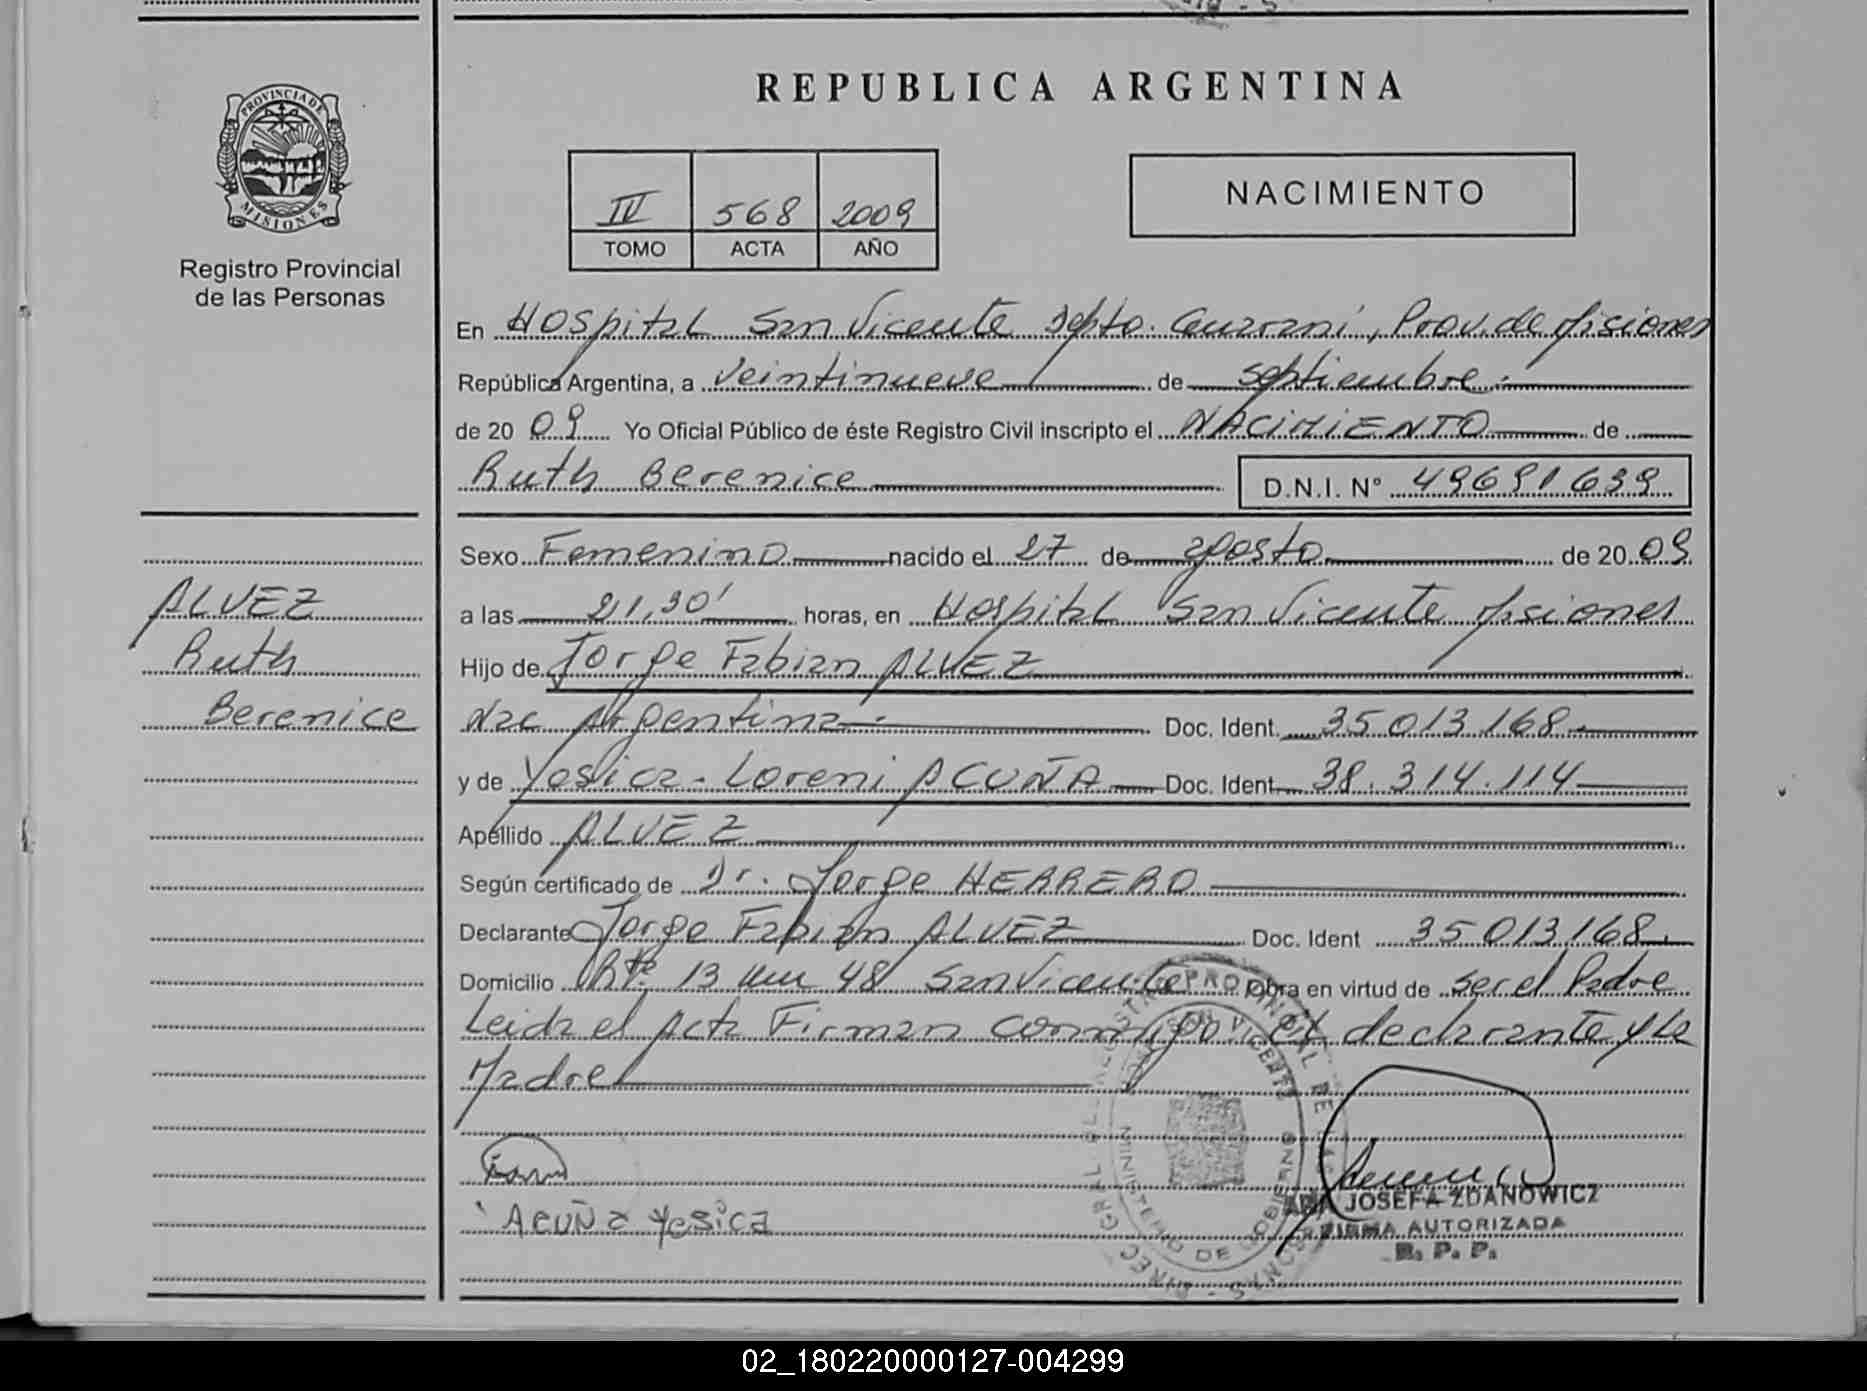 REPUBLICA ARGENTINA
PROVINCIA DE
MISIONES
Registro Provincial
de las Personas
IV 568 2009
TOMO ACTA AÑO
NACIMIENTO
En Hospital San Vicente Dpto. Guaraní, Prov. de Misiones
República Argentina, a veintinueve de septiembre.
de 20 09 Yo Oficial Público de éste Registro Civil inscripto el NACIMIENTO de
Ruth Berenice D.N.I. N° 49691639
Sexo Femenino nacido el 27 de agosto de 20 09
a las 21,30' horas, en Hospital San Vicente Misiones
Hijo de Jorge Fabian ALVEZ
Nac Argentina Doc. Ident. 35013168
y de Yesica Loreni ACUÑA Doc. Ident. 38.314.114
Apellido ALVEZ
Según certificado de Dr. Jorge HERRERO
Declarante Jorge Fabian ALVEZ Doc. Ident 35013168
Domicilio Rta. 13 km 48 San Vicente Obra en virtud de ser el Padre
Leida el Acta Firman conmigo el declarante y la
Madre
ALVEZ
Ruth
Berenice
Acuña Yesica
REGISTRO PROVINCIAL DE LAS PERSONAS
SAN VICENTE
MINISTERIO DE GOBIERNO
ANA JOSEFA ZDANOWICZ
FIRMA AUTORIZADA
R. P. P.
02_180220000127-004299